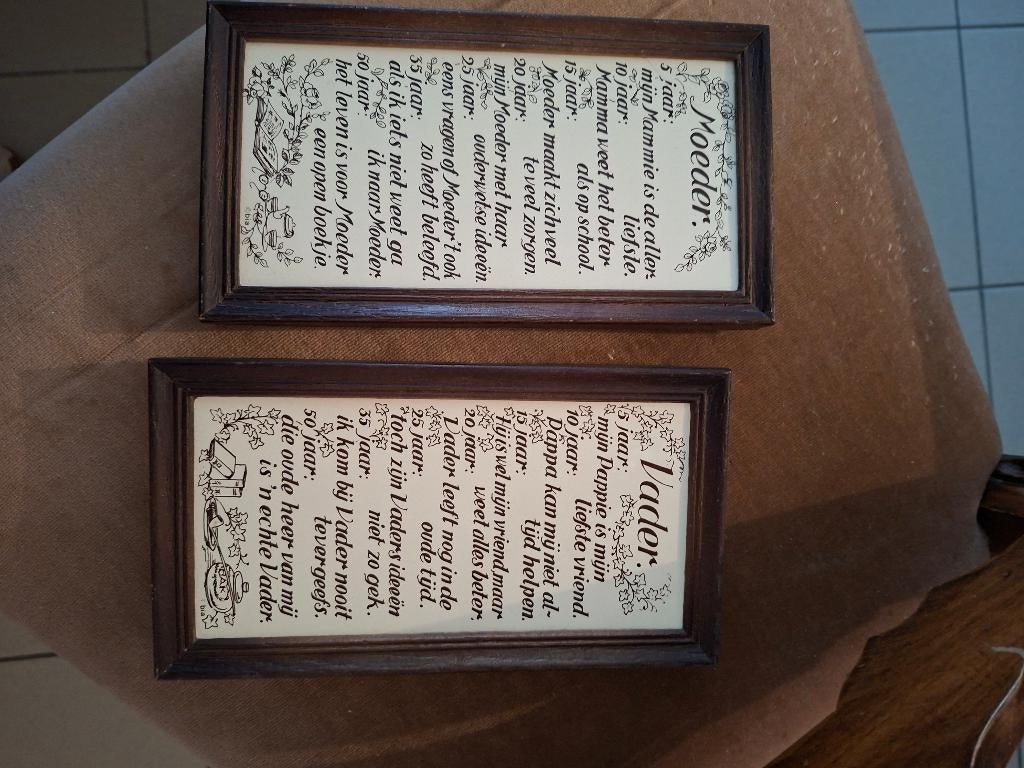 Moeder.
5 jaar:
mijn Mammie is de aller
liefste.
10 jaar:
Mamma weet het beter
als op school.
15 jaar:
Moeder maakt zich veel
te veel zorgen.
20 jaar:
mijn Moeder met haar
ouderwetse ideeën.
25 jaar:
eens vragen of Moeder 't ook
zo heeft beleefd.
35 jaar:
als ik iets niet weet ga
ik naar Moeder.
50 jaar:
het leven is voor Moeder
een open boekje.
©bia
Vader.
5 jaar:
mijn Pappie is mijn
liefste vriend.
10 jaar:
Pappa kan mij met al-
tijd helpen.
15 jaar:
Hij is wel mijn vriend, maar
weet alles beter.
20 jaar:
Vader leeft nog in de
oude tijd.
25 jaar:
toch zijn Vaders ideeën
niet zo gek.
35 jaar:
ik kom bij Vader nooit
tevergeefs.
50 jaar:
die oude heer van mij
is 'n echte Vader.
bia